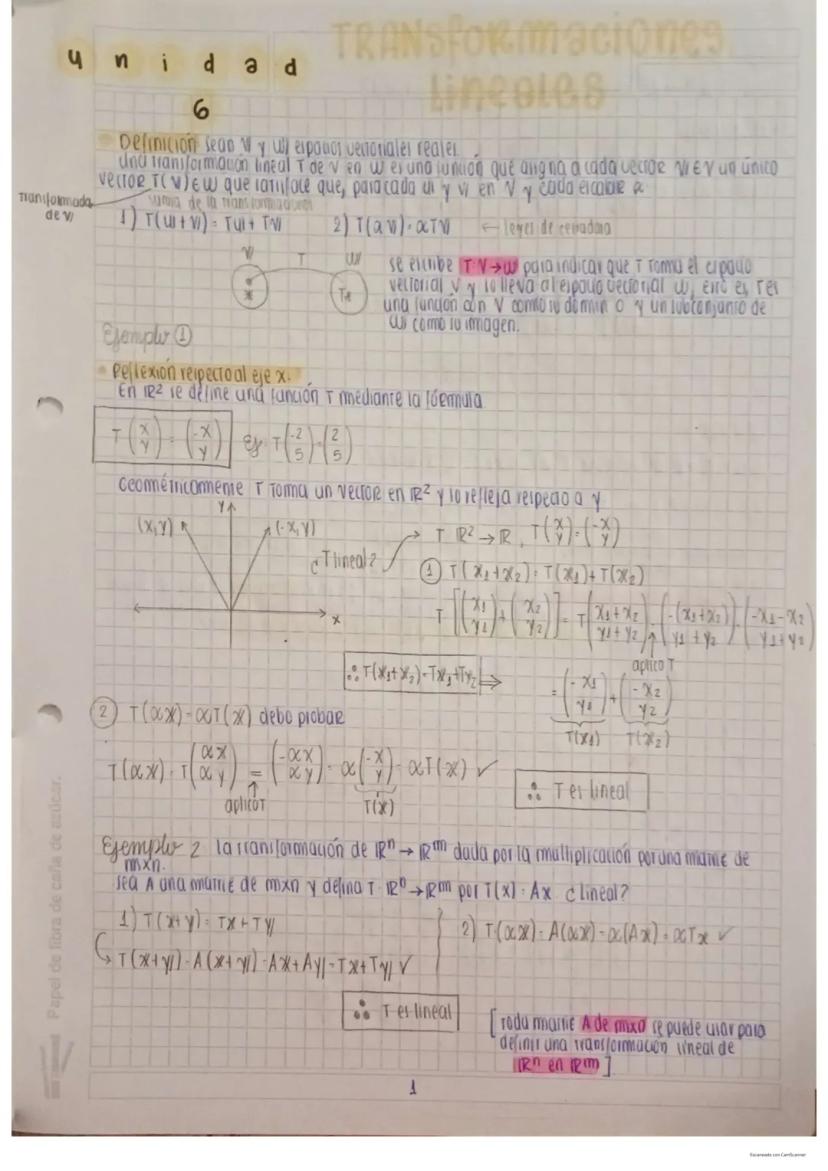 TRANSformaciones
Lineales
unidad
6
Definición Sean V y W espacios vectoriales reales.
Una transformación lineal T de V en W es una función que asigna a cada vector V ∈ V un único
vector T(V) ∈ W que satisface que, para cada u y v en V y cada escalar α
Transformada
de v
suma de la transformación
1) T(u + v) = Tu + Tv
2) T(αv) = αTv ← leyes de cerradura
V T W
Tx
se escribe T V→W para indicar que T toma el espacio
vectorial V y lo lleva al espacio vectorial W, esto es, T es
una función con V como su dominio y un subconjunto de
W como su imagen.
Ejemplo ①
Reflexión respecto al eje x.
En ℝ² se define una función T mediante la fórmula
T(x y) = (-x y) Ej T(-2 5) = (2 5)
Geométricamente T toma un vector en ℝ² y lo refleja respecto a y
y
(x,y) (-x,y)
x
¿T lineal?
T ℝ² → ℝ, T(x y) = (-x y)
① T(x₁+x₂) = T(x₁) + T(x₂)
T[(x₁ y₁) + (x₂ y₂)] = T(x₁+x₂ y₁+y₂) = (-(x₁+x₂) y₁+y₂) = (-x₁-x₂ y₁+y₂)
aplico T
∴ T(x₁+x₂) = Tx₁+Tx₂ ⟹
= (-x₁ y₁) + (-x₂ y₂)
T(x₁) T(x₂)
② T(αx) = αT(x) debo probar
T(αx) = T(αx αy) = (-αx αy) = α(-x y) = αT(-x) ✓
aplico T T(x)
∴ T es lineal
Ejemplo 2 la transformación de ℝⁿ → ℝᵐ dada por la multiplicación por una matriz de
mxn.
sea A una matriz de mxn y defina T ℝⁿ→ℝᵐ por T(x) = Ax ¿lineal?
1) T(x+y) = Tx + Ty
2) T(αx) = A(αx) = α(Ax) = αTx ✓
T(x+y) = A(x+y) = Ax + Ay = Tx + Ty ✓
∴ T es lineal
[toda matriz A de mxn se puede usar para
definir una transformación lineal de
ℝⁿ en ℝᵐ]
1
Papel de fibra de caña de azúcar.
Escaneado con CamScanner